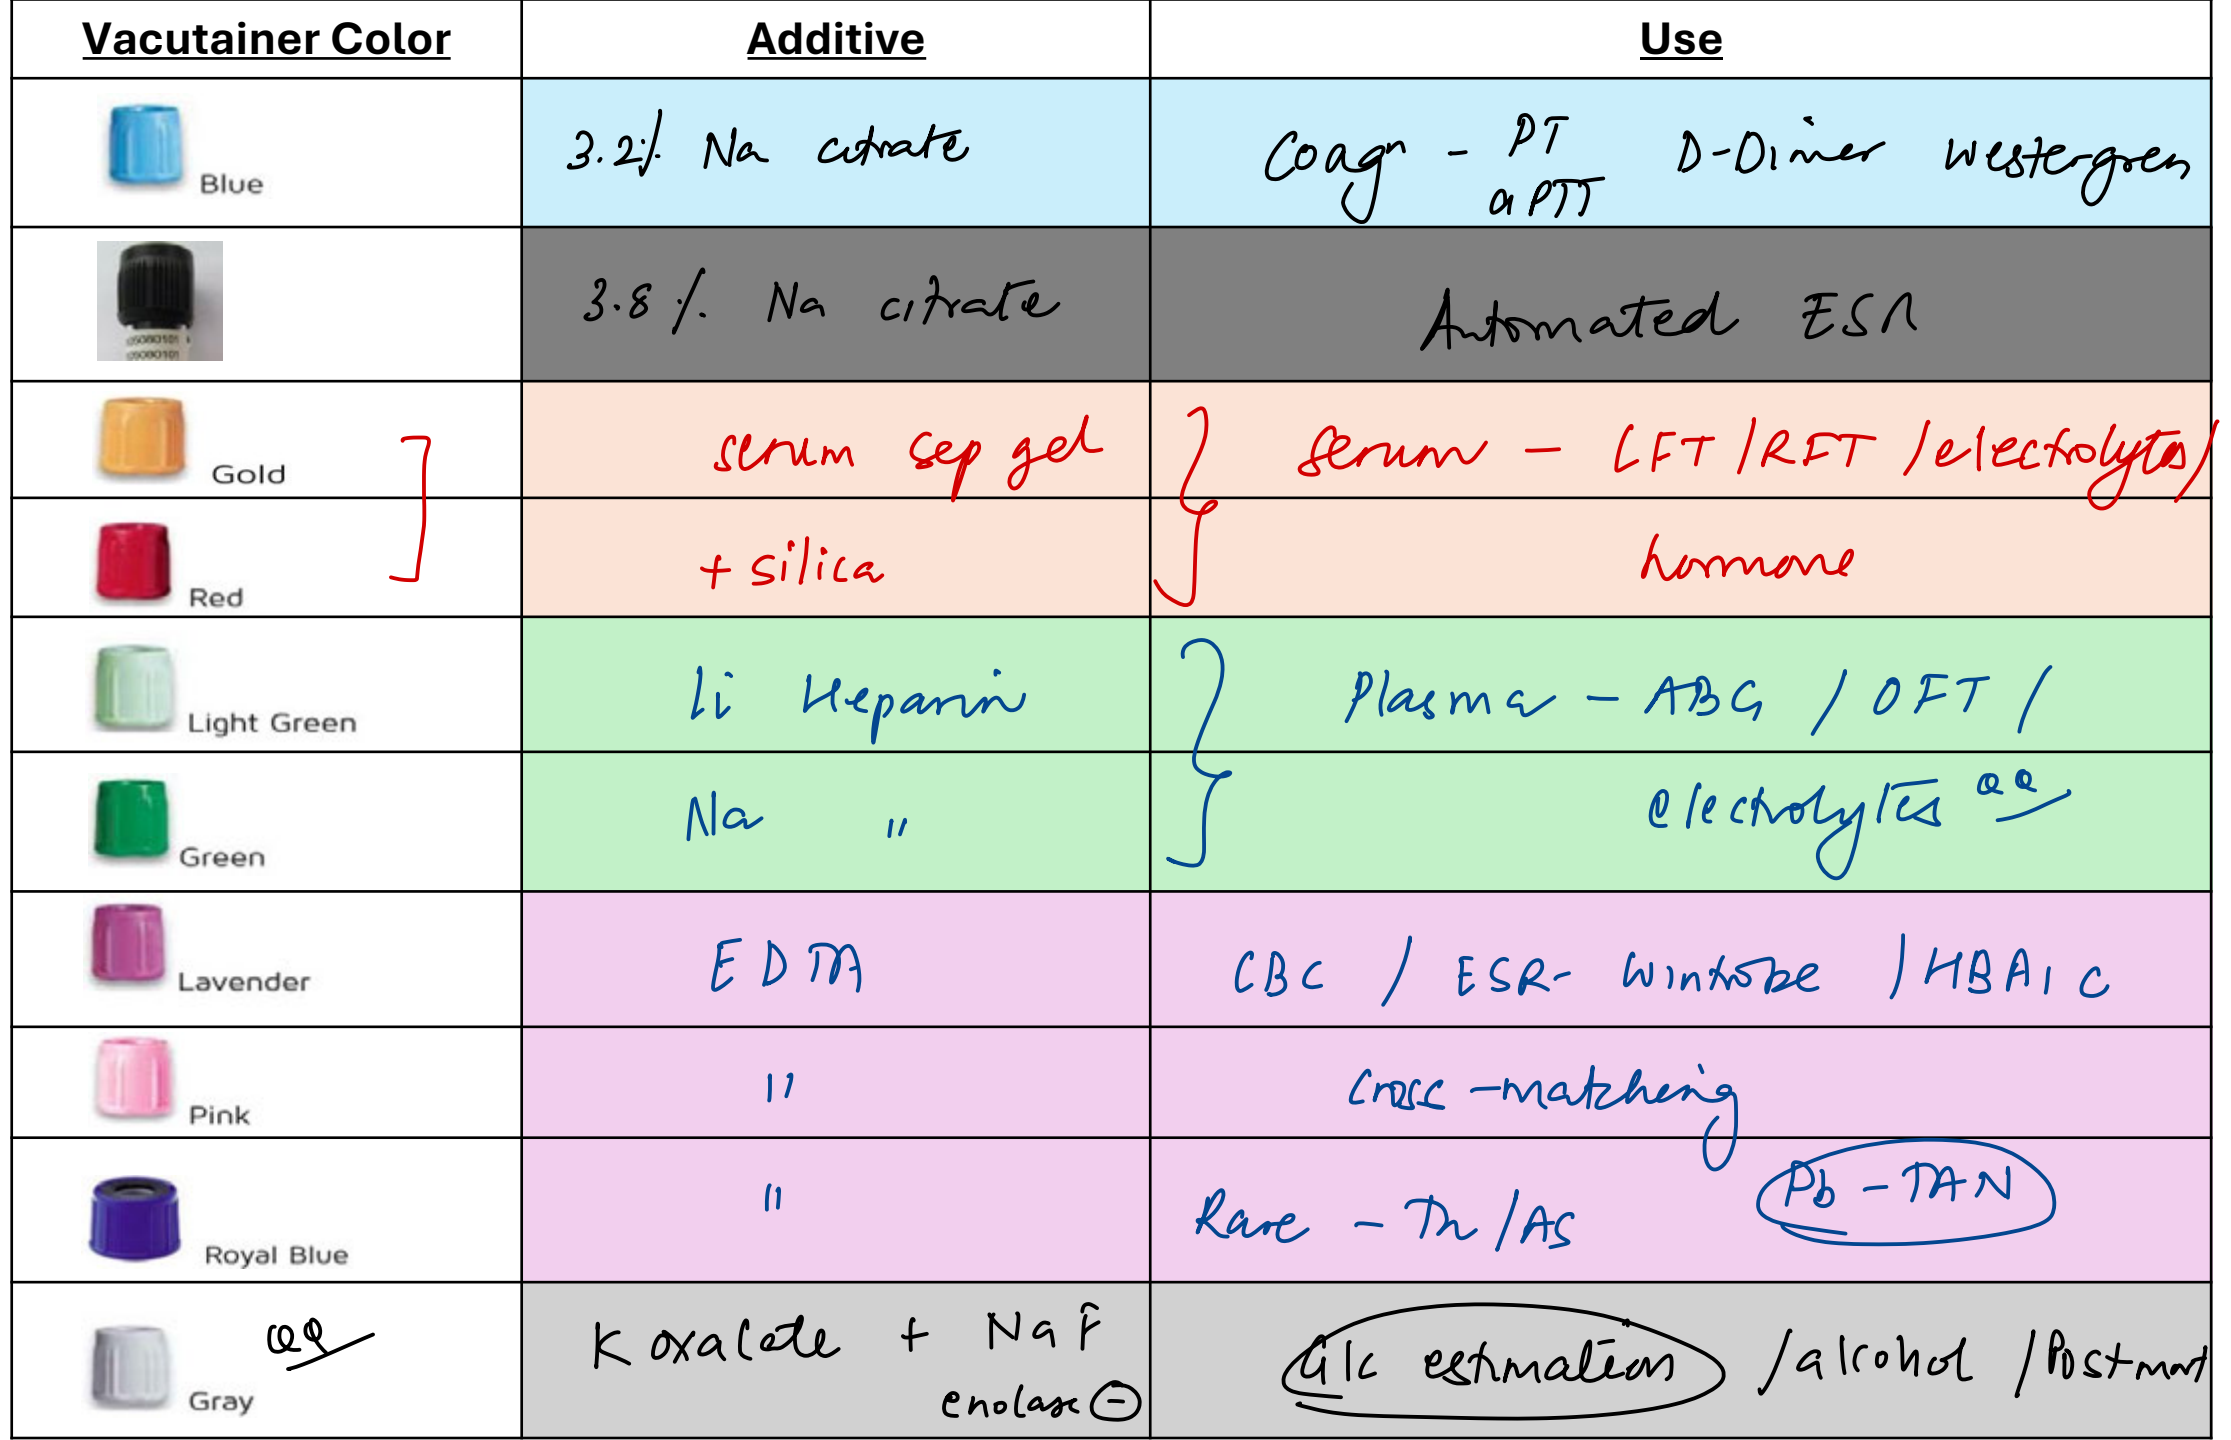 Vacutainer Color Additive Use
Blue 3.2% Na citrate Coagn - PT aPTT D-Dimer Westergren
3.8% Na citrate Automated ESR
Gold serum sep gel Serum - LFT/RFT/electrolytes/
Red + silica hormone
Light Green Li Heparin Plasma - ABG / OFT /
Green Na " electrolytes
Lavender EDTA CBC / ESR- Wintrobe / HBA1C
Pink " Cross-matching
Royal Blue " Rare - /AS Pb - TAN
Gray K oxalate + NaF Glc estimation /alcohol /Postmort
enolase ⊖